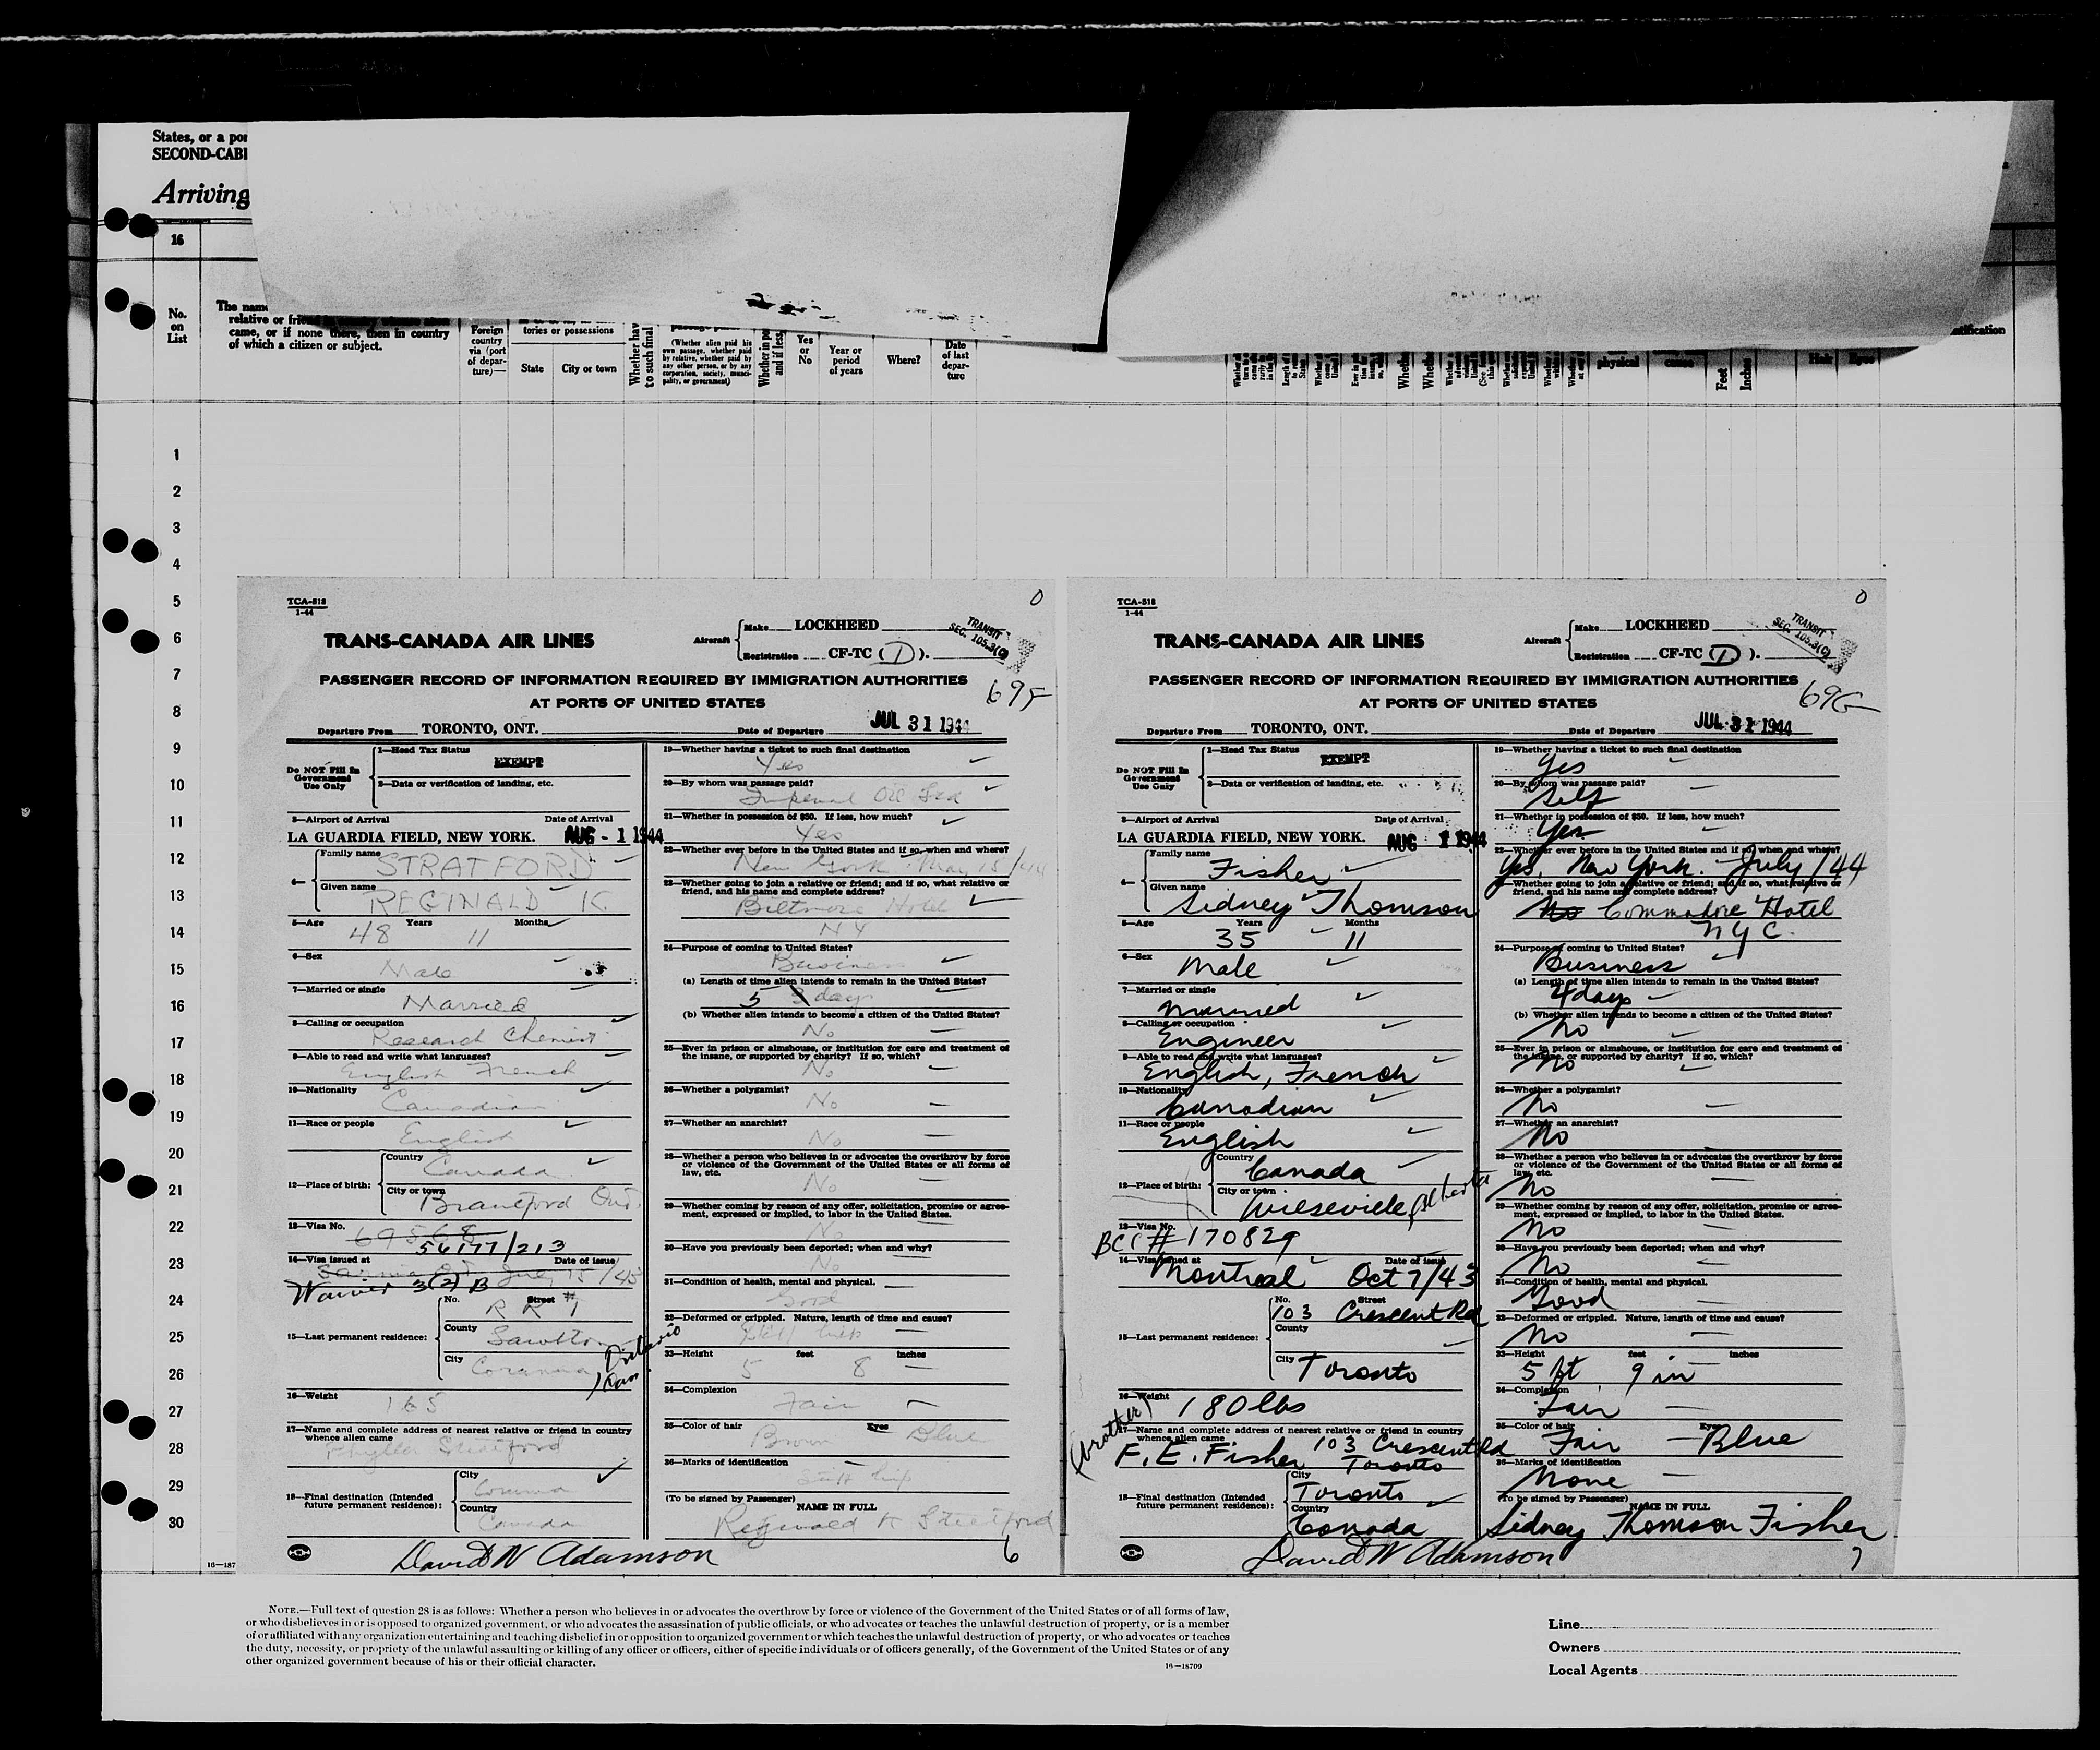 States, or a por
SECOND-CABI
Arriving
16
No.
on
List
The name
relative or friend
came, or if none there, then in country
of which a citizen or subject.
Foreign
country
via (port
of depar-
ture)—
tories or possessions
State
City or town
Whether hav
to such final
(Whether alien paid his
own passage, whether paid
by relative, whether paid by
any other person, or by any
corporation, society, munici-
pality, or government)
Whether in po
and if less
Yes
or
No
Year or
period
of years
Where?
Date
of last
depar-
ture
physical
cause
Feet
Inches
Hair
Eyes
1
2
3
4
5
6
7
8
9
10
11
12
13
14
15
16
17
18
19
20
21
22
23
24
25
26
27
28
29
30
TCA-518
1-44
0
TRANS-CANADA AIR LINES
Aircraft
Make LOCKHEED
Registration CF-TC (I).
TRANSIT
SEC. 105.3(C)
PASSENGER RECORD OF INFORMATION REQUIRED BY IMMIGRATION AUTHORITIES
AT PORTS OF UNITED STATES
69F
Departure From TORONTO, ONT. Date of Departure JUL 31 1944
Do NOT Fill In
Government
Use Only
1—Head Tax Status
EXEMPT
2—Data or verification of landing, etc.
3—Airport of Arrival Date of Arrival
LA GUARDIA FIELD, NEW YORK. AUG - 1 1944
4—
Family name
STRATFORD
Given name
REGINALD K
5—Age Years Months
48 11
6—Sex
Male
7—Married or single
Married
8—Calling or occupation
Research Chemist
9—Able to read and write what languages?
English French
10—Nationality
Canadian
11—Race or people
English
12—Place of birth:
Country
Canada
City or town
Brantford Ont.
13—Visa No.
69568
56177/213
14—Visa issued at Date of issue
Waiver 3(2) B
15—Last permanent residence:
No. Street
R R #1
County
City
Corunna
Ontario
Can.
16—Weight
165
17—Name and complete address of nearest relative or friend in country
whence alien came
Stratford
18—Final destination (Intended
future permanent residence):
City
Corunna
Country
Canada
David W Adamson
19—Whether having a ticket to such final destination
Yes
20—By whom was passage paid?
Imperial Oil Ltd
21—Whether in possession of $50. If less, how much?
Yes
22—Whether ever before in the United States and if so, when and where?
New York May 15/44
23—Whether going to join a relative or friend; and if so, what relative or
friend, and his name and complete address?
Biltmore Hotel
NY
24—Purpose of coming to United States?
Business
(a) Length of time alien intends to remain in the United States?
5 days
(b) Whether alien intends to become a citizen of the United States?
No
25—Ever in prison or almshouse, or institution for care and treatment of
the insane, or supported by charity? If so, which?
No
26—Whether a polygamist?
No
27—Whether an anarchist?
No
28—Whether a person who believes in or advocates the overthrow by force
or violence of the Government of the United States or all forms of
law, etc.
No
29—Whether coming by reason of any offer, solicitation, promise or agree-
ment, expressed or implied, to labor in the United States.
No
30—Have you previously been deported; when and why?
No
31—Condition of health, mental and physical.
Good
32—Deformed or crippled. Nature, length of time and cause?
Stiff hip
33—Height feet inches
5 8
34—Complexion
Fair
35—Color of hair Eyes
Brown Blue
36—Marks of identification
Stiff hip
(To be signed by Passenger) NAME IN FULL
Reginald K Stratford
6
TCA-518
1-44
0
TRANS-CANADA AIR LINES
Aircraft
Make LOCKHEED
Registration CF-TC (I).
TRANSIT
SEC. 105.3(C)
PASSENGER RECORD OF INFORMATION REQUIRED BY IMMIGRATION AUTHORITIES
AT PORTS OF UNITED STATES
69G
Departure From TORONTO, ONT. Date of Departure JUL 31 1944
Do NOT Fill In
Government
Use Only
1—Head Tax Status
EXEMPT
2—Data or verification of landing, etc.
3—Airport of Arrival Date of Arrival
LA GUARDIA FIELD, NEW YORK. AUG 1 1944
4—
Family name
Fisher
Given name
Sidney Thomson
5—Age Years Months
35 11
6—Sex
Male
7—Married or single
Married
8—Calling or occupation
Engineer
9—Able to read and write what languages?
English, French
10—Nationality
Canadian
11—Race or people
English
12—Place of birth:
Country
Canada
City or town
Wieseville, Alberta
13—Visa No.
BCC # 170829
14—Visa issued at Date of issue
Montreal Oct 7/43
15—Last permanent residence:
No. Street
103 Crescent Rd
County
City
Toronto
16—Weight
180 lbs
17—Name and complete address of nearest relative or friend in country
whence alien came
(brother)
F. E. Fisher 103 Crescent Rd
Toronto
18—Final destination (Intended
future permanent residence):
City
Toronto
Country
Canada
David W Adamson
19—Whether having a ticket to such final destination
Yes
20—By whom was passage paid?
Self
21—Whether in possession of $50. If less, how much?
Yes
22—Whether ever before in the United States and if so, when and where?
Yes, New York. July/44
23—Whether going to join a relative or friend; and if so, what relative or
friend, and his name and complete address?
No Commodore Hotel
NYC.
24—Purpose of coming to United States?
Business
(a) Length of time alien intends to remain in the United States?
4 days
(b) Whether alien intends to become a citizen of the United States?
No
25—Ever in prison or almshouse, or institution for care and treatment of
the insane, or supported by charity? If so, which?
No
26—Whether a polygamist?
No
27—Whether an anarchist?
No
28—Whether a person who believes in or advocates the overthrow by force
or violence of the Government of the United States or all forms of
law, etc.
No
29—Whether coming by reason of any offer, solicitation, promise or agree-
ment, expressed or implied, to labor in the United States.
No
30—Have you previously been deported; when and why?
No
31—Condition of health, mental and physical.
Good
32—Deformed or crippled. Nature, length of time and cause?
No
33—Height feet inches
5 ft 9 in
34—Complexion
Fair
35—Color of hair Eyes
Fair Blue
36—Marks of identification
None
(To be signed by Passenger) NAME IN FULL
Sidney Thomson Fisher
7
16—187
NOTE.—Full text of question 28 is as follows: Whether a person who believes in or advocates the overthrow by force or violence of the Government of the United States or of all forms of law,
or who disbelieves in or is opposed to organized government, or who advocates the assassination of public officials, or who advocates or teaches the unlawful destruction of property, or is a member
of or affiliated with any organization entertaining and teaching disbelief in or opposition to organized government or which teaches the unlawful destruction of property, or who advocates or teaches
the duty, necessity, or propriety of the unlawful assaulting or killing of any officer or officers, either of specific individuals or of officers generally, of the Government of the United States or of any
other organized government because of his or their official character.
16—18709
Line
Owners
Local Agents